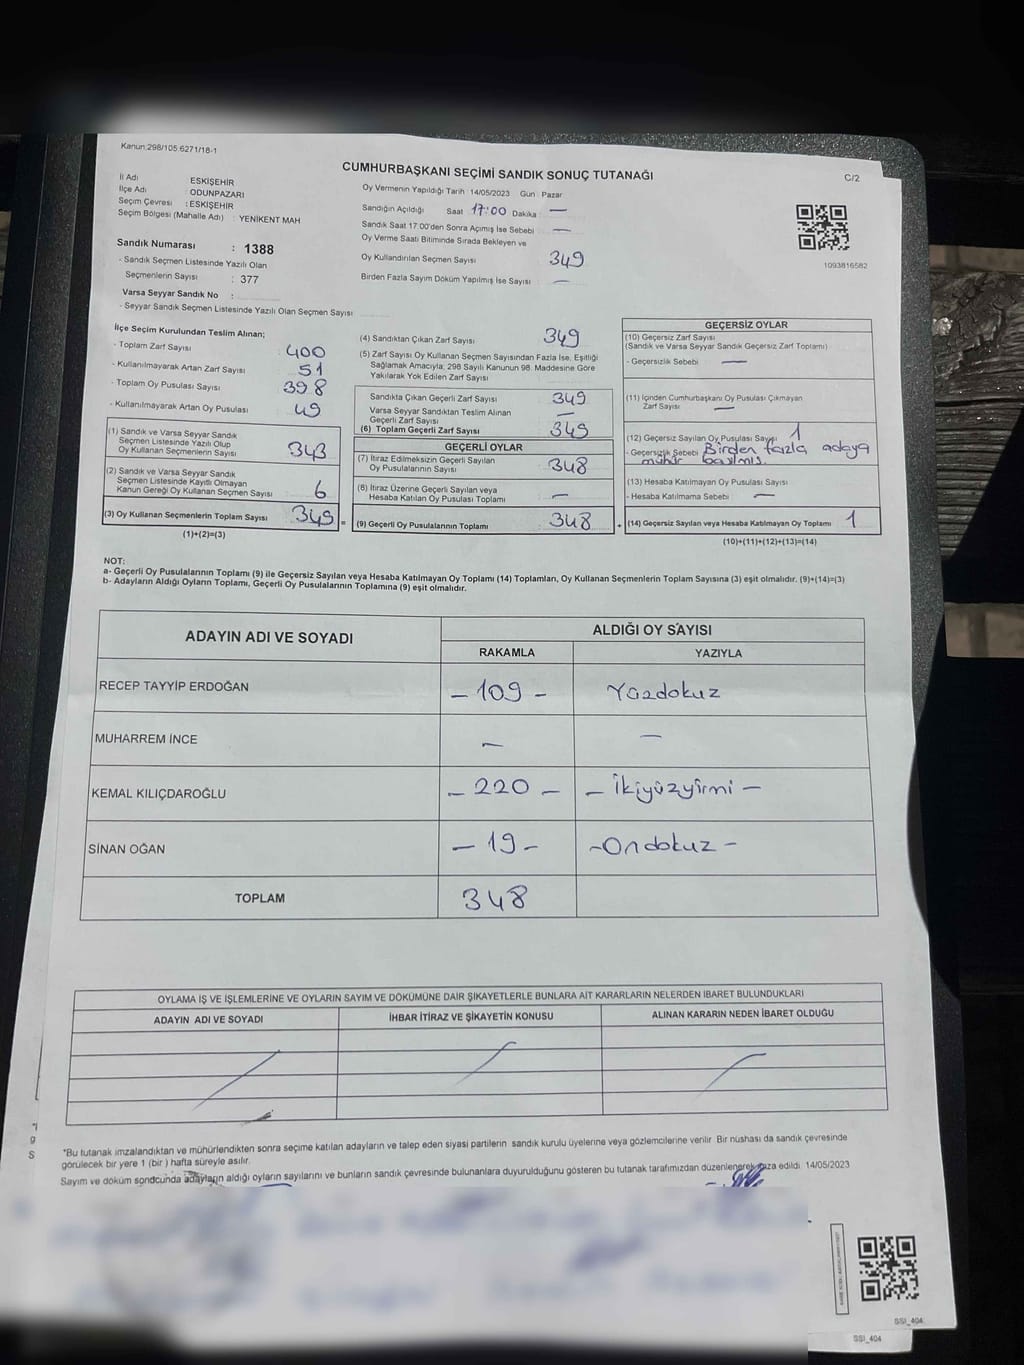 Kanun.298/105.6271/18-1
CUMHURBAŞKANI SEÇİMİ SANDIK SONUÇ TUTANAĞI
C/2
İl Adı ESKİŞEHİR
İlçe Adı : ODUNPAZARI
Seçim Çevresi : ESKİŞEHİR
Seçim Bölgesi (Mahalle Adı) : YENİKENT MAH
Sandık Numarası : 1388
- Sandık Seçmen Listesinde Yazılı Olan
Seçmenlerin Sayısı : 377
Varsa Seyyar Sandık No :
- Seyyar Sandık Seçmen Listesinde Yazılı Olan Seçmen Sayısı
Oy Vermenin Yapıldığı Tarih 14/05/2023 Gün : Pazar
Sandığın Açıldığı Saat 17:00 Dakika : —
Sandık Saat 17 00'den Sonra Açılmış İse Sebebi —
Oy Verme Saati Bitiminde Sırada Bekleyen ve
Oy Kullandırılan Seçmen Sayısı 349
Birden Fazla Sayım Döküm Yapılmış İse Sayısı —
1093816582
İlçe Seçim Kurulundan Teslim Alınan;
- Toplam Zarf Sayısı 400
- Kullanılmayarak Artan Zarf Sayısı 51
- Toplam Oy Pusulası Sayısı 398
- Kullanılmayarak Artan Oy Pusulası 49
(1) Sandık ve Varsa Seyyar Sandık
Seçmen Listesinde Yazılı Olup
Oy Kullanan Seçmenlerin Sayısı 343
(2) Sandık ve Varsa Seyyar Sandık
Seçmen Listesinde Kayıtlı Olmayan
Kanun Gereği Oy Kullanan Seçmen Sayısı 6
(3) Oy Kullanan Seçmenlerin Toplam Sayısı 349 =
(1)+(2)=(3)
(4) Sandıktan Çıkan Zarf Sayısı 349
(5) Zarf Sayısı Oy Kullanan Seçmen Sayısından Fazla İse, Eşitliği
Sağlamak Amacıyla, 298 Sayılı Kanunun 98. Maddesine Göre
Yakılarak Yok Edilen Zarf Sayısı
Sandıkta Çıkan Geçerli Zarf Sayısı 349
Varsa Seyyar Sandıktan Teslim Alınan
Geçerli Zarf Sayısı —
(6) Toplam Geçerli Zarf Sayısı 349
GEÇERLİ OYLAR
(7) İtiraz Edilmeksizin Geçerli Sayılan
Oy Pusulalarının Sayısı 348
(8) İtiraz Üzerine Geçerli Sayılan veya
Hesaba Katılan Oy Pusulası Toplamı —
(9) Geçerli Oy Pusulalarının Toplamı 348 +
GEÇERSİZ OYLAR
(10) Geçersiz Zarf Sayısı
(Sandık ve Varsa Seyyar Sandık Geçersiz Zarf Toplamı)
- Geçersizlik Sebebi —
(11) İçinden Cumhurbaşkanı Oy Pusulası Çıkmayan
Zarf Sayısı —
(12) Geçersiz Sayılan Oy Pusulası Sayısı 1
- Geçersizlik Sebebi Birden fazla adaya
mühür basılmış.
(13) Hesaba Katılmayan Oy Pusulası Sayısı
- Hesaba Katılmama Sebebi —
(14) Geçersiz Sayılan veya Hesaba Katılmayan Oy Toplamı 1
(10)+(11)+(12)+(13)=(14)
NOT:
a- Geçerli Oy Pusulalarının Toplamı (9) ile Geçersiz Sayılan veya Hesaba Katılmayan Oy Toplamı (14) Toplamları, Oy Kullanan Seçmenlerin Toplam Sayısına (3) eşit olmalıdır. (9)+(14)=(3)
b- Adayların Aldığı Oyların Toplamı, Geçerli Oy Pusulalarının Toplamına (9) eşit olmalıdır.
ADAYIN ADI VE SOYADI ALDIĞI OY SAYISI
RAKAMLA YAZIYLA
RECEP TAYYİP ERDOĞAN — 109 — Yüzdokuz
MUHARREM İNCE — —
KEMAL KILIÇDAROĞLU — 220 — — İkiyüzyirmi —
SİNAN OĞAN — 19 — — Ondokuz —
TOPLAM 348
OYLAMA İŞ VE İŞLEMLERİNE VE OYLARIN SAYIM VE DÖKÜMÜNE DAİR ŞİKAYETLERLE BUNLARA AİT KARARLARIN NELERDEN İBARET BULUNDUKLARI
ADAYIN ADI VE SOYADI İHBAR İTİRAZ VE ŞİKAYETİN KONUSU ALINAN KARARIN NEDEN İBARET OLDUĞU
*Bu tutanak imzalandıktan ve mühürlendikten sonra seçime katılan adayların ve talep eden siyasi partilerin sandık kurulu üyelerine veya gözlemcilerine verilir Bir nüshası da sandık çevresinde
görülecek bir yere 1 (bir ) hafta süreyle asılır.
Sayım ve döküm sonucunda adayların aldığı oyların sayılarını ve bunların sandık çevresinde bulunanlara duyurulduğunu gösteren bu tutanak tarafımızdan düzenlenerek imza edildi. 14/05/2023
SSI_404
SSI_404